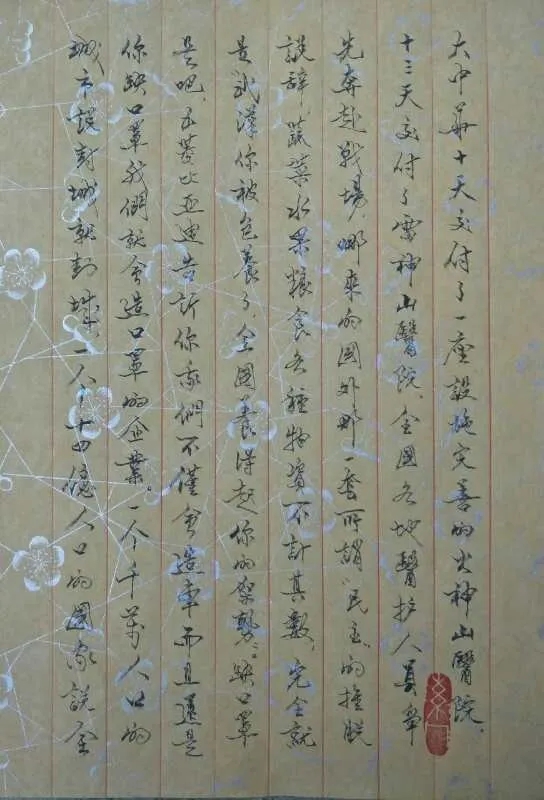 大中華十天交付了一座設施完善的火神山醫院、
十三天交付了雷神山醫院、全國各地醫护人員争
先奔赴戰場，哪來的國外那一套所謂“民主”的推脱
説辞，蔬菜水果粮食各種物資不計其數，完全就
是武漢你被包養了，全國養得起你的架勢。缺口罩
是吧，五菱比亚迪告訴你我們不僅會造車而且還是
你缺口罩我們就会造口罩的企業。一个千萬人口的
城市説封城就封城，一个十四億人口的國家説全